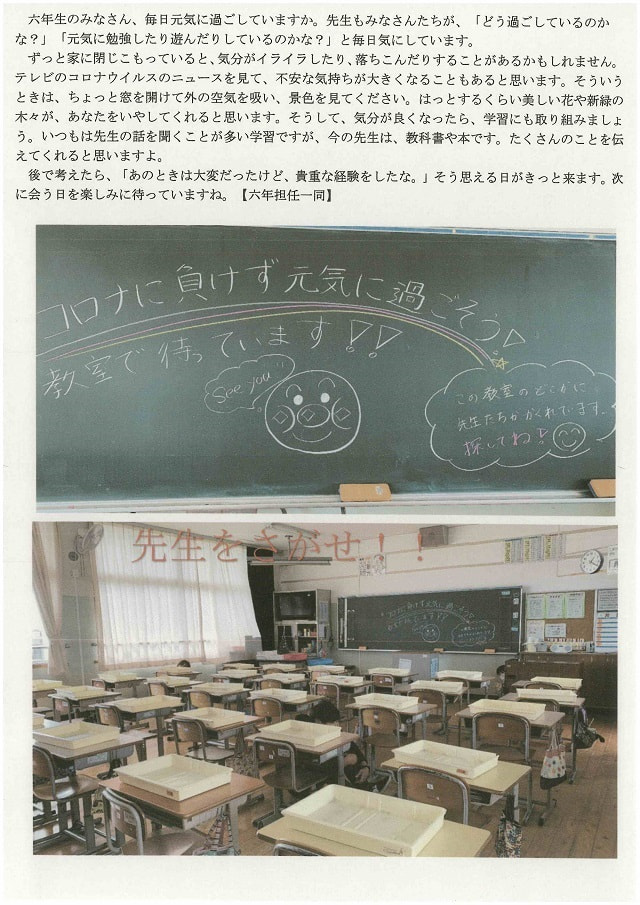 六年生のみなさん、毎日元気に過ごしていますか。先生もみなさんたちが、「どう過ごしているのか
な？」「元気に勉強したり遊んだりしているのかな？」と毎日気にしています。
ずっと家に閉じこもっていると、気分がイライラしたり、落ちこんだりすることがあるかもしれません。
テレビのコロナウイルスのニュースを見て、不安な気持ちが大きくなることもあると思います。そういう
ときは、ちょっと窓を開けて外の空気を吸い、景色を見てください。はっとするくらい美しい花や新緑の
木々が、あなたをいやしてくれると思います。そうして、気分が良くなったら、学習にも取り組みましょ
う。いつもは先生の話を聞くことが多い学習ですが、今の先生は、教科書や本です。たくさんのことを伝
えてくれると思いますよ。
後で考えたら、「あのときは大変だったけど、貴重な経験をしたな。」そう思える日がきっと来ます。次
に会う日を楽しみに待っていますね。【六年担任一同】
コロナに負けず元気に過ごそう！
教室で待っています！！
See you
この教室のどこかに
先生たちがかくれています。
探してね！
先生をさがせ！！
コロナに負けず元気に過ごそう
教室で待っています！！